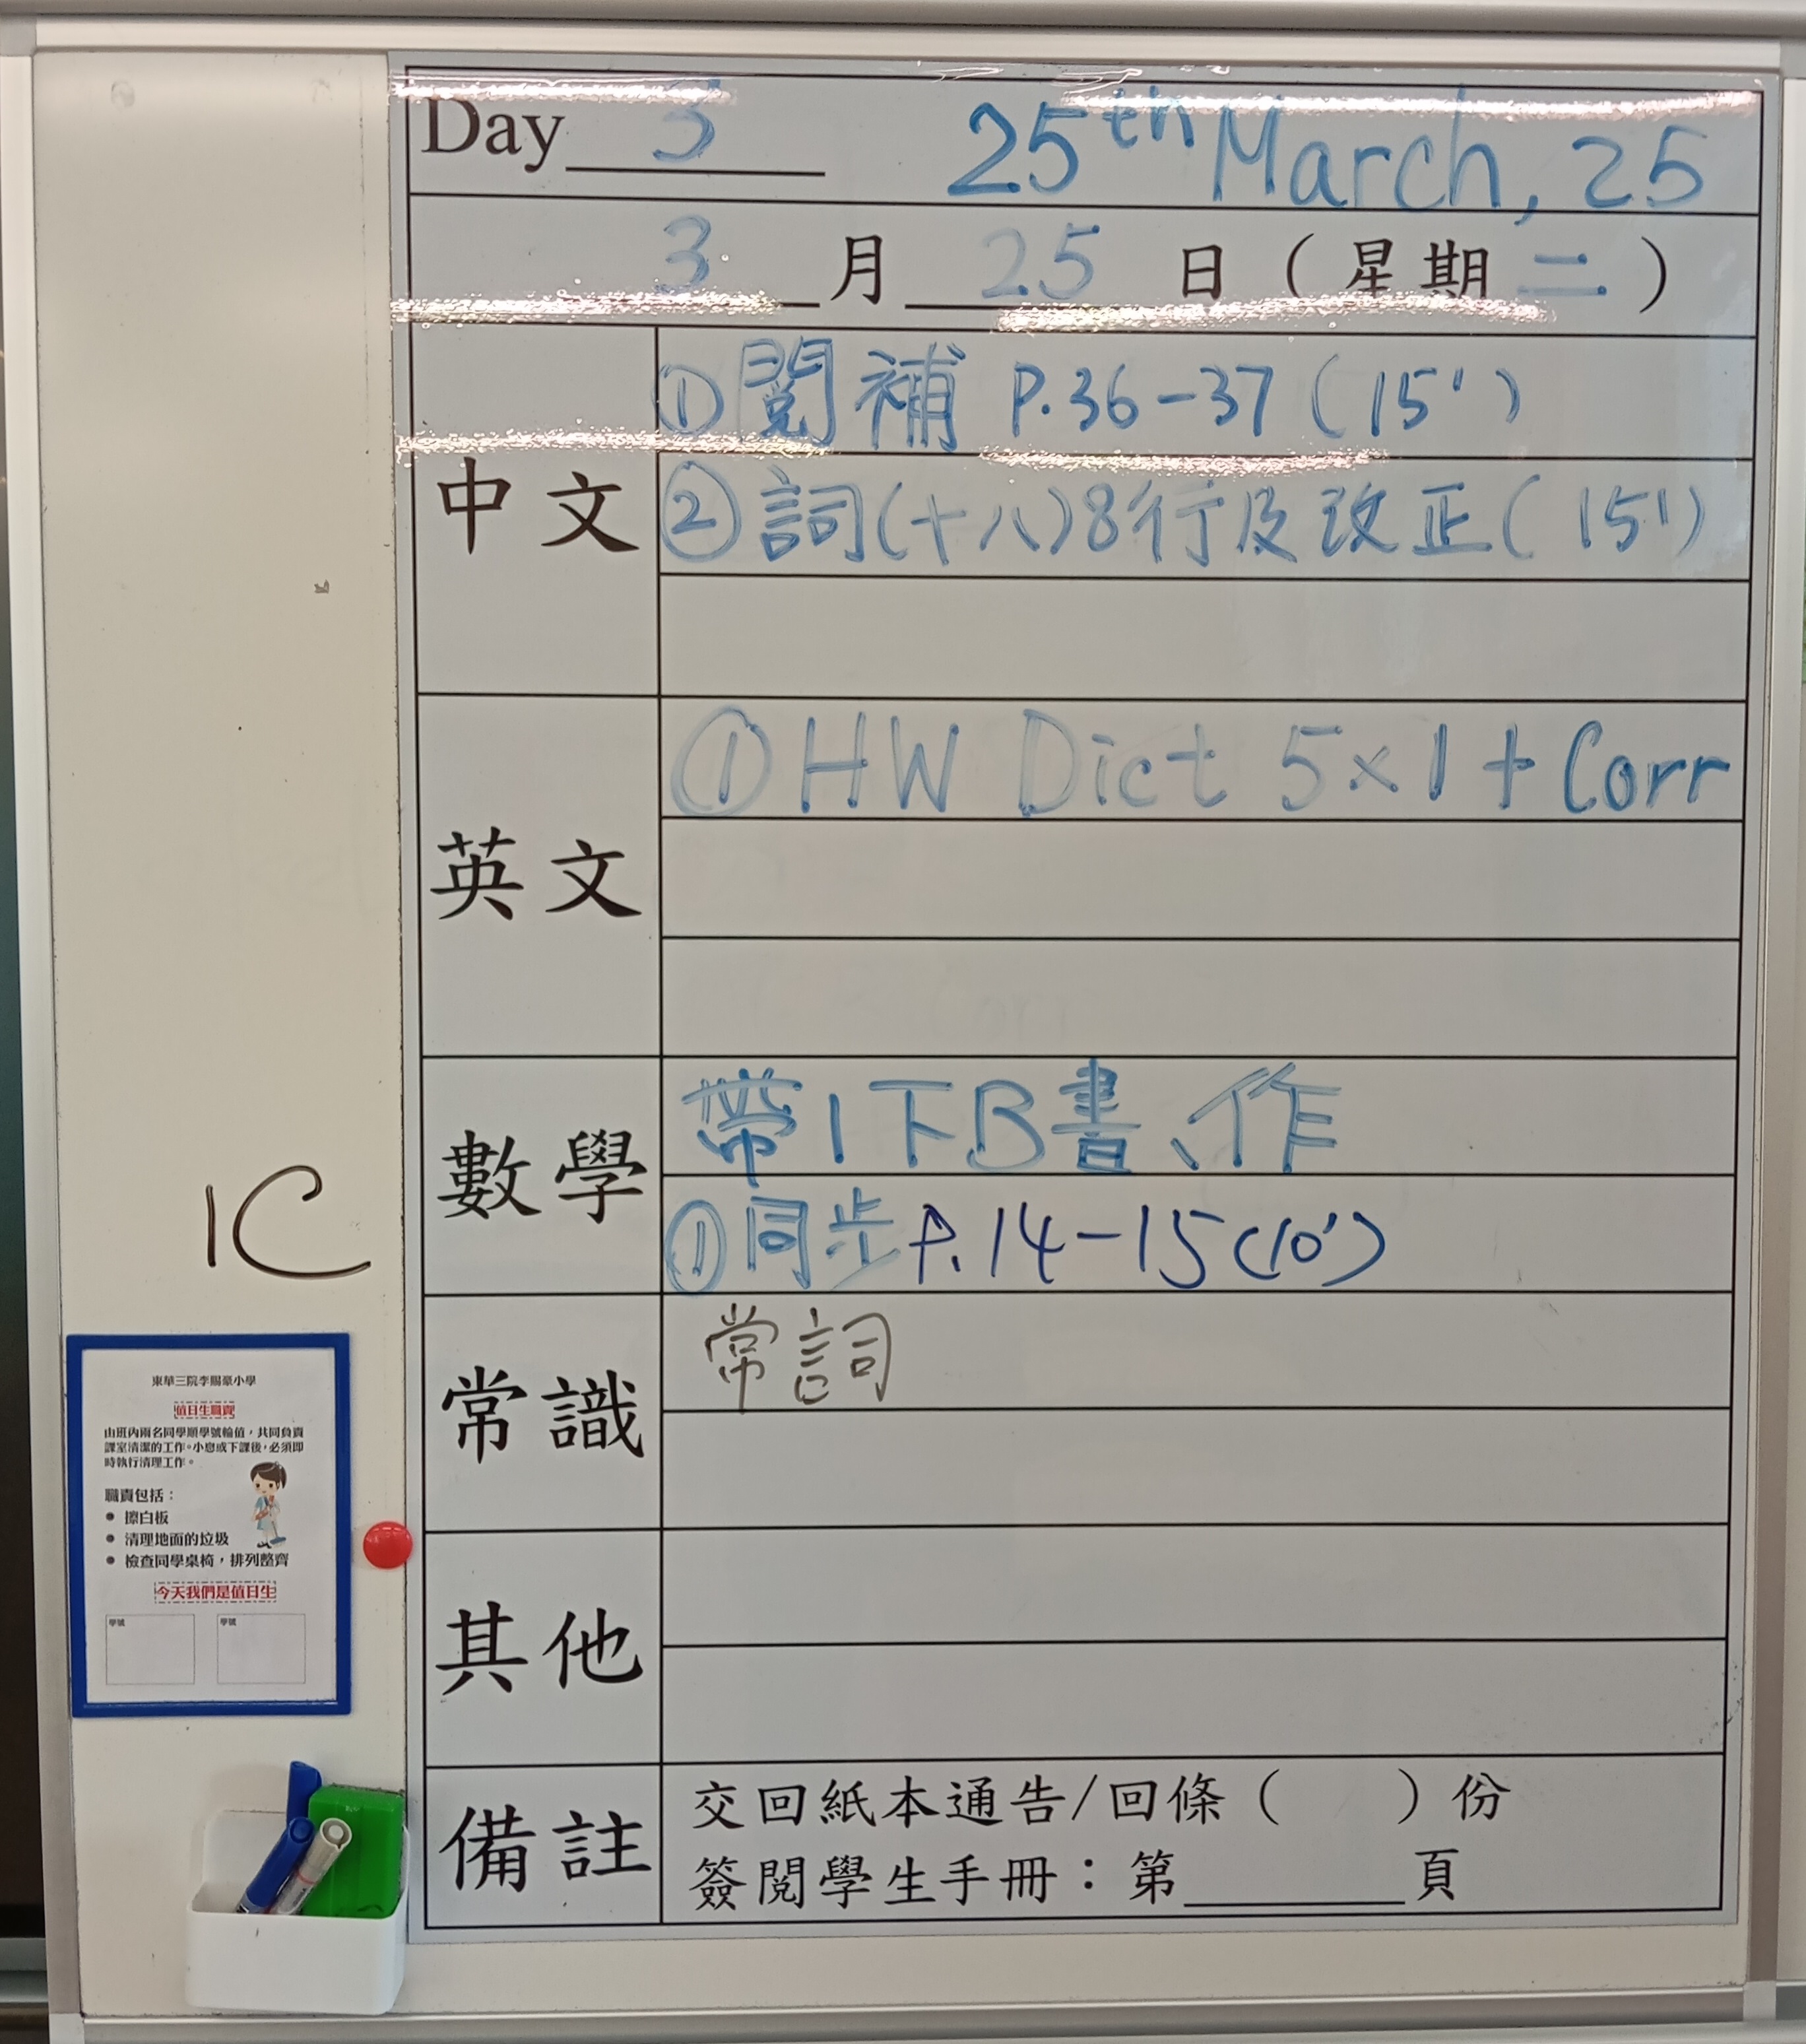 Day 3 25th March, 25
3 月 25 日 ( 星期 二 )
中文
① 閱補 P.36-37 (15')
② 詞(十八)8行及改正(15')
英文
① HW Dict 5×1 + Corr
數學
帶1下B書、作
① 同步 P.14-15(10')
常識
常詞
其他
備註
交回紙本通告/回條( )份
簽閱學生手冊：第______頁
1C
東華三院李賜豪小學
值日生職責
由班內兩名同學順學號輪值，共同負責
課室清潔的工作。小息或下課後，必須即
時執行清理工作。
職責包括：
● 擦白板
● 清理地面的垃圾
● 檢查同學桌椅，排列整齊
今天我們是值日生
學號 學號